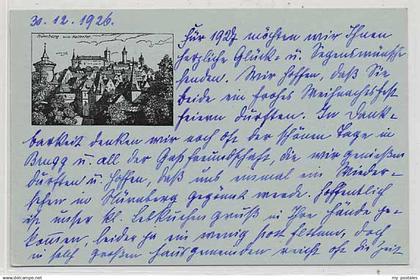 30.12.1926.
Nürnberg vom Hallertor
Für 1927 möchten wir Ihnen
herzliche Glück- u. Segenswünsche
senden. Wir hoffen, daß Sie
beide ein frohes Weihnachtsfest
feiern durften. In Dank-
barkeit denken wir noch oft der schönen Tage in
Brugg u. all der Gastfreundschaft, die wir genießen
durften u. hoffen, daß uns einmal ein Wieder-
sehen in Nürnberg gegönnt werde. Hoffentlich
ist unser kl. Lebkuchengruß in Ihre Hände ge-
kommen, leider ja ein wenig post festum, doch
in solch großen Hausgemeinden reicht oft die Zeit
my postales